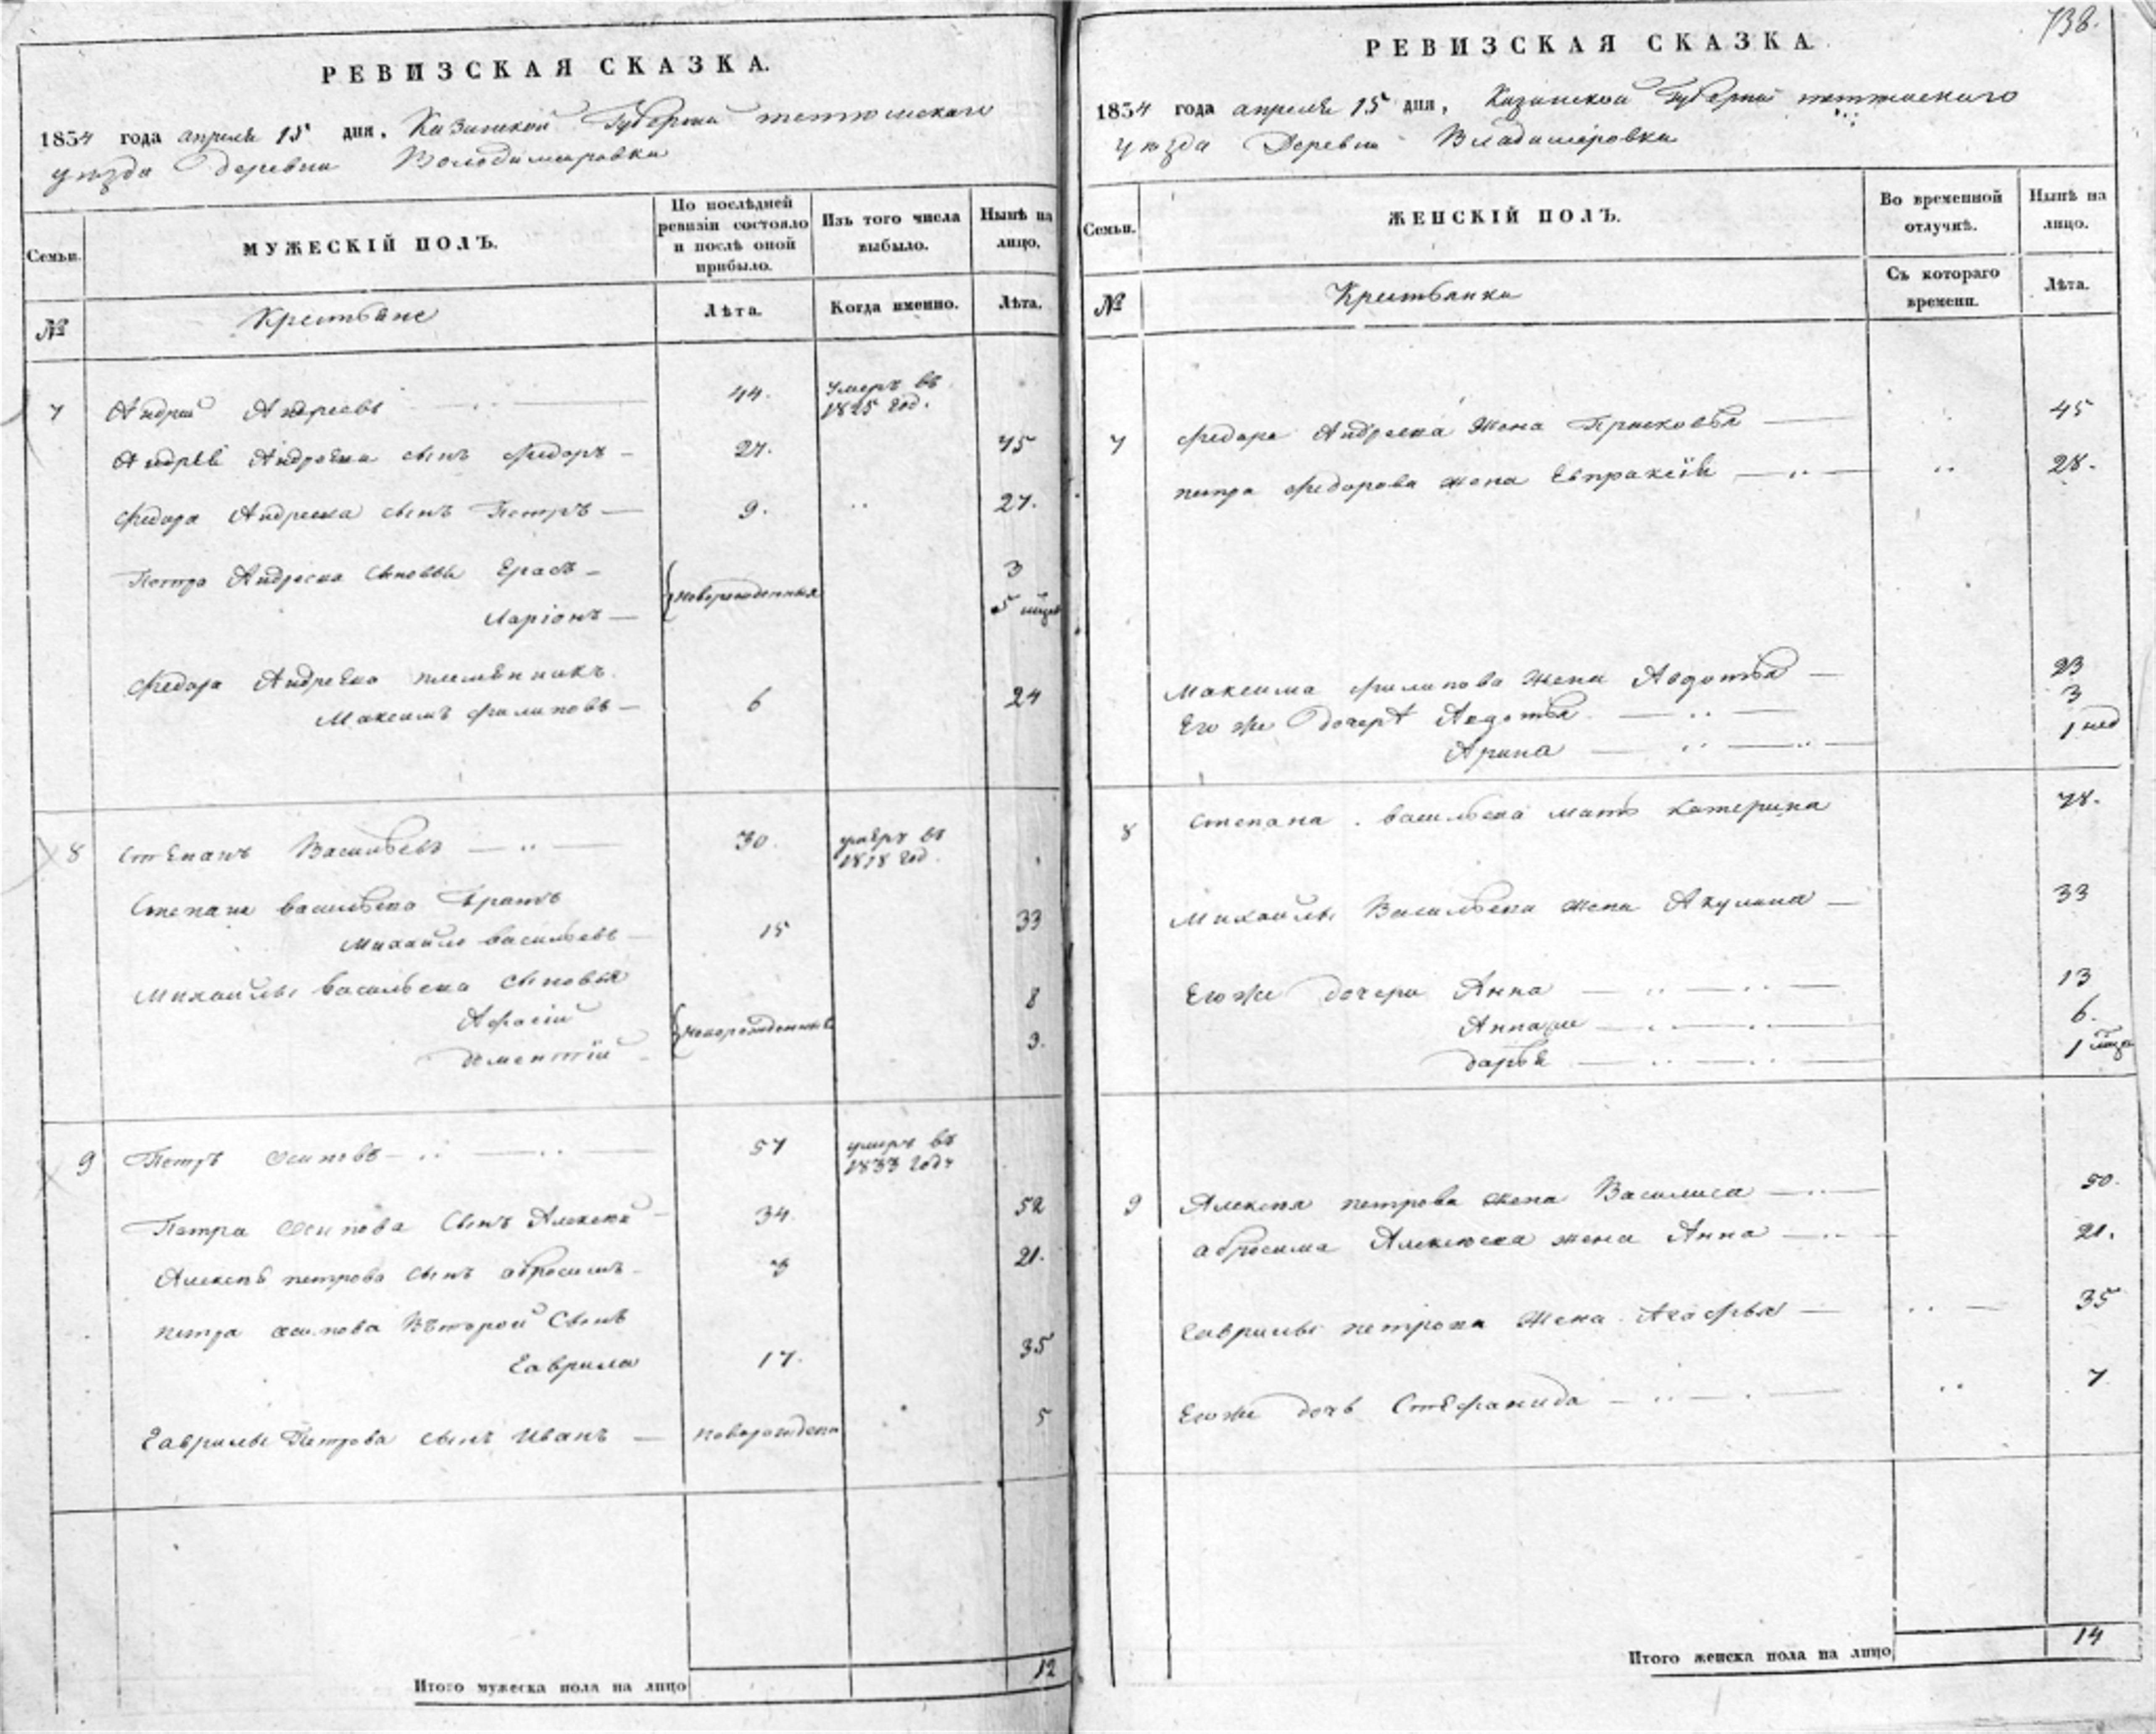 РЕВИЗСКАЯ СКАЗКА.
1834 года апреля 15 дня, Казанской Губернии тетюшскаго
уезда деревни Володимировки
Семьи.
МУЖЕСКІЙ ПОЛЪ.
По послѣдней ревизіи состояло и послѣ оной прибыло.
Изъ того числа выбыло.
Нынѣ на лицо.
№
Крестьяне
Лѣта.
Когда именно.
Лѣта.
7 Андрей Андреевъ 44. Умеръ въ 1825 год.
Андрея Андреева сынъ Федоръ 27. 45
Федора Андреева сынъ Петръ 9. 27.
Петра Андреева сыновья Ерасъ 3
Ларіонъ новорожденныя 5 мцов
Федора Андреева племянникъ
Максимъ Филиповъ 6 24
8 Степанъ Васильевъ 30. умеръ въ 1818 год.
Степана васильева братъ
Михайло васильевъ 15 33
Михайлы васильева сыновья
8
дементій новорожденныя 3.
9 Петръ осиповъ 57 умеръ въ 1833 годъ
Петра осипова сынъ Алексей 34. 52
Алексея петрова сынъ абросимъ 3 21.
петра осипова Второй Сынъ
Гаврила 17. 35
Гаврилы Петрова сынъ Иванъ новорожденъ 5
Итого мужеска пола на лицо 12
738.
РЕВИЗСКАЯ СКАЗКА.
1834 года апреля 15 дня, Казанской Губернии тетюшскаго
уезда Деревни Владимировки
Семьи.
ЖЕНСКІЙ ПОЛЪ.
Во временной отлучкѣ.
Нынѣ на лицо.
№
Крестьянки
Съ котораго времени.
Лѣта.
7 Федора Андреева жена Прасковья 45
петра Федорова жена Евпраксія 28.
Максима Филипова жена Авдотья 23
Его же дочери Авдотья 3
Арина 1 нед
8 Степана васильева мать катерина 78.
Михайлы Васильева жена Акулина 33
Его же дочери Анна 13
6.
дарья 1 мцъ
9 Алексея петрова жена Василиса 50.
абросима Алексеева жена Анна 21.
Гаврилы петрова жена Агафья 35
Его же дочь Стефанида 7
Итого женска пола на лицо 14